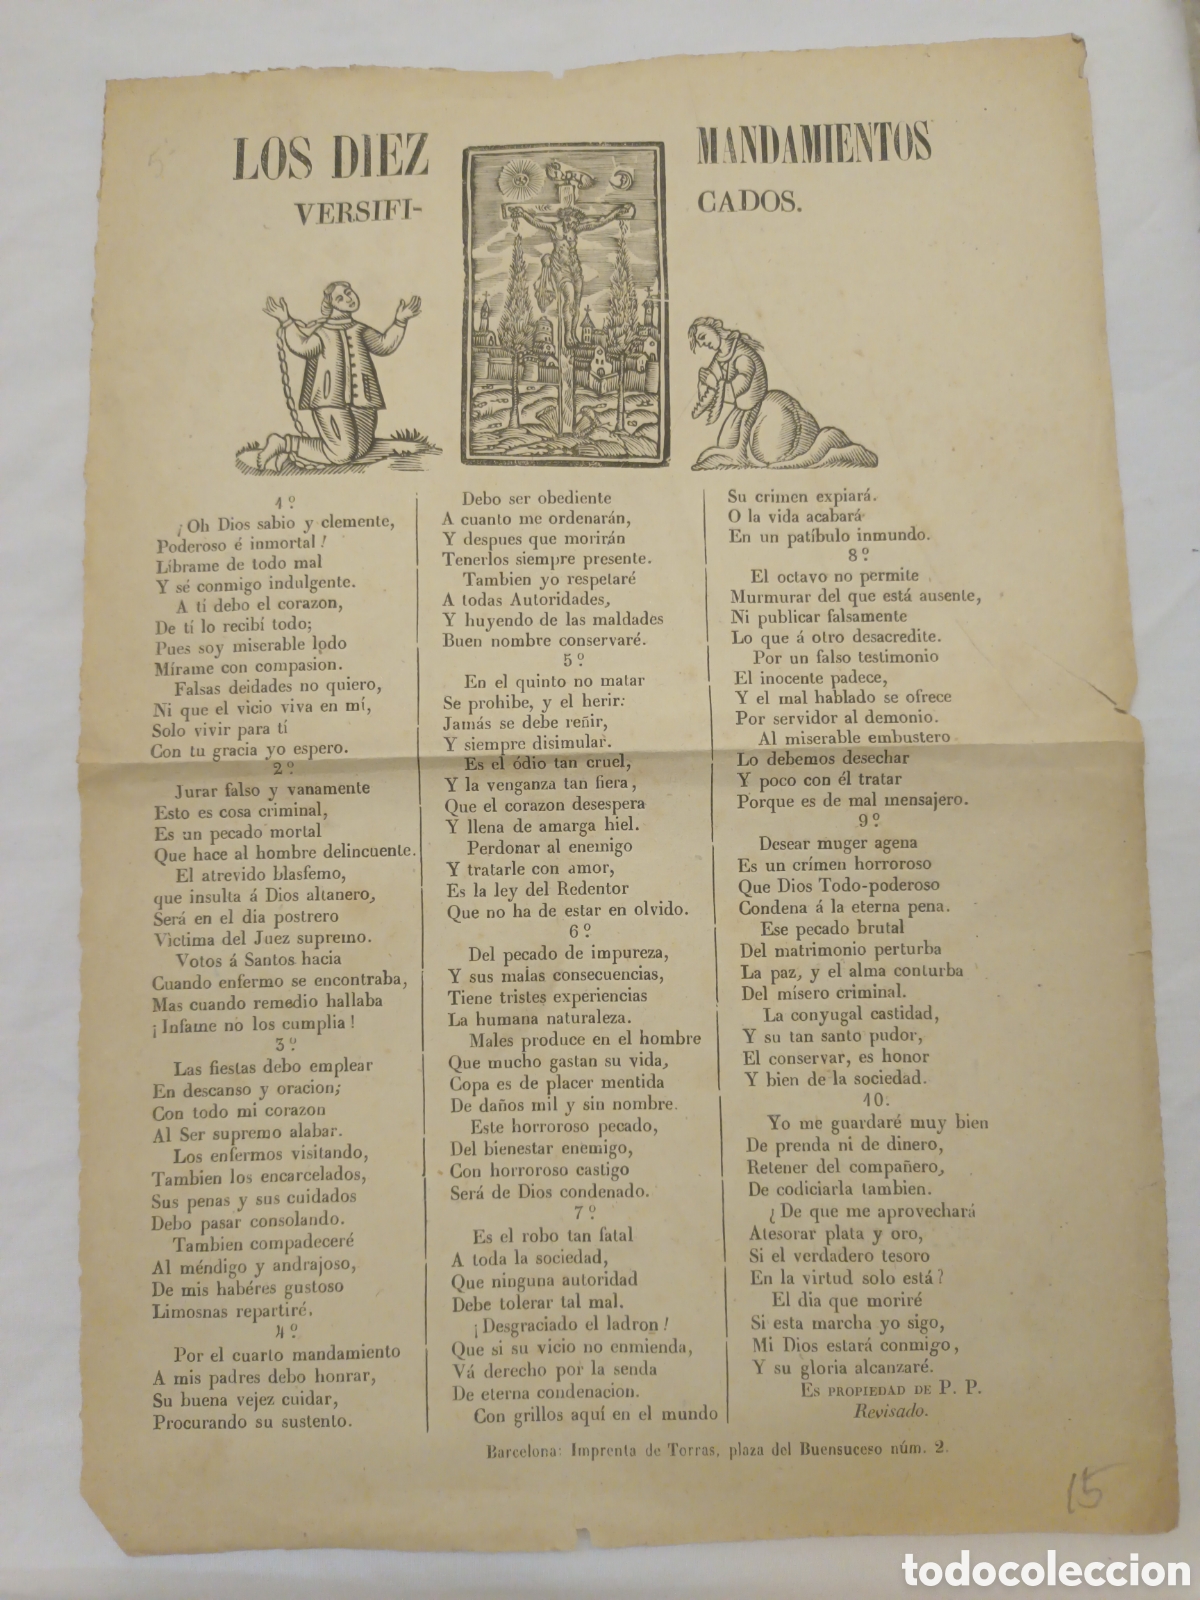 LOS DIEZ MANDAMIENTOS
VERSIFI- CADOS.
1º
¡Oh Dios sabio y clemente,
Poderoso é inmortal!
Librame de todo mal
Y sé conmigo indulgente.
A tí debo el corazon,
De tí lo recibí todo;
Pues soy miserable lodo
Mírame con compasion.
Falsas deidades no quiero,
Ni que el vicio viva en mí,
Solo vivir para tí
Con tu gracia yo espero.
2º
Jurar falso y vanamente
Esto es cosa criminal,
Es un pecado mortal
Que hace al hombre delincuente.
El atrevido blasfemo,
que insulta á Dios altanero,
Será en el dia postrero
Victima del Juez supremo.
Votos á Santos hacia
Cuando enfermo se encontraba,
Mas cuando remedio hallaba
¡Infame no los cumplia!
3º
Las fiestas debo emplear
En descanso y oracion;
Con todo mi corazon
Al Ser supremo alabar.
Los enfermos visitando,
Tambien los encarcelados,
Sus penas y sus cuidados
Debo pasar consolando.
Tambien compadeceré
Al méndigo y andrajoso,
De mis habéres gustoso
Limosnas repartiré.
4º
Por el cuarto mandamiento
A mis padres debo honrar,
Su buena vejez cuidar,
Procurando su sustento.
Debo ser obediente
A cuanto me ordenarán,
Y despues que morirán
Tenerlos siempre presente.
Tambien yo respetaré
A todas Autoridades,
Y huyendo de las maldades
Buen nombre conservaré.
5º
En el quinto no matar
Se prohibe, y el herir:
Jamás se debe reñir,
Y siempre disimular.
Es el ódio tan cruel,
Y la venganza tan fiera,
Que el corazon desespera
Y llena de amarga hiel.
Perdonar al enemigo
Y tratarle con amor,
Es la ley del Redentor
Que no ha de estar en olvido.
6º
Del pecado de impureza,
Y sus malas consecuencias,
Tiene tristes experiencias
La humana naturaleza.
Males produce en el hombre
Que mucho gastan su vida,
Copa es de placer mentida
De daños mil y sin nombre.
Este horroroso pecado,
Del bienestar enemigo,
Con horroroso castigo
Será de Dios condenado.
7º
Es el robo tan fatal
A toda la sociedad,
Que ninguna autoridad
Debe tolerar tal mal.
¡Desgraciado el ladron!
Que si su vicio no enmienda,
Vá derecho por la senda
De eterna condenacion.
Con grillos aquí en el mundo
Su crimen expiará.
O la vida acabará
En un patíbulo inmundo.
8º
El octavo no permite
Murmurar del que está ausente,
Ni publicar falsamente
Lo que á otro desacredite.
Por un falso testimonio
El inocente padece,
Y el mal hablado se ofrece
Por servidor al demonio.
Al miserable embustero
Lo debemos desechar
Y poco con él tratar
Porque es de mal mensajero.
9º
Desear muger agena
Es un crímen horroroso
Que Dios Todo-poderoso
Condena á la eterna pena.
Ese pecado brutal
Del matrimonio perturba
La paz, y el alma conturba
Del mísero criminal.
La conyugal castidad,
Y su tan santo pudor,
El conservar, es honor
Y bien de la sociedad.
10.
Yo me guardaré muy bien
De prenda ni de dinero,
Retener del compañero,
De codiciarla tambien.
¿De que me aprovechará
Atesorar plata y oro,
Si el verdadero tesoro
En la virtud solo está?
El dia que moriré
Si esta marcha yo sigo,
Mi Dios estará conmigo,
Y su gloria alcanzaré.
ES PROPIEDAD DE P. P.
Revisado.
Barcelona: Imprenta de Torras, plaza del Buensuceso núm. 2.
15
todocoleccion